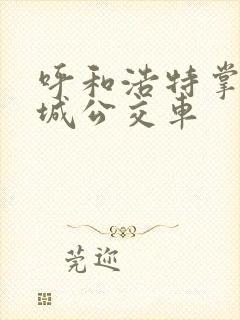 呼和浩特掌
城公交车
莞迩